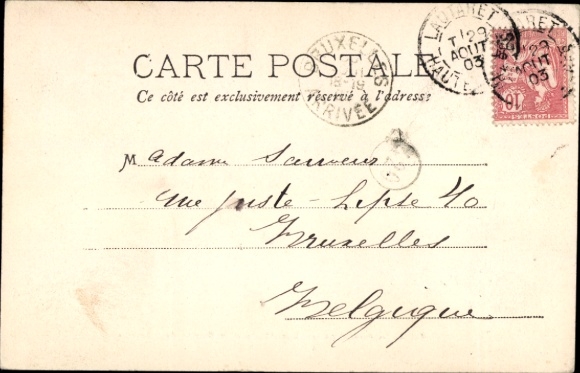 CARTE POSTALE
Ce côté est exclusivement réservé à l'adresse
BRUXELLES
ARRIVÉE
LAUTARET
29
AOUT
03
HAUTES
LAUTARET
29
AOUT
03
10
POSTES
Madame Sauveur
rue Juste-Lipse 40
Bruxelles
Belgique